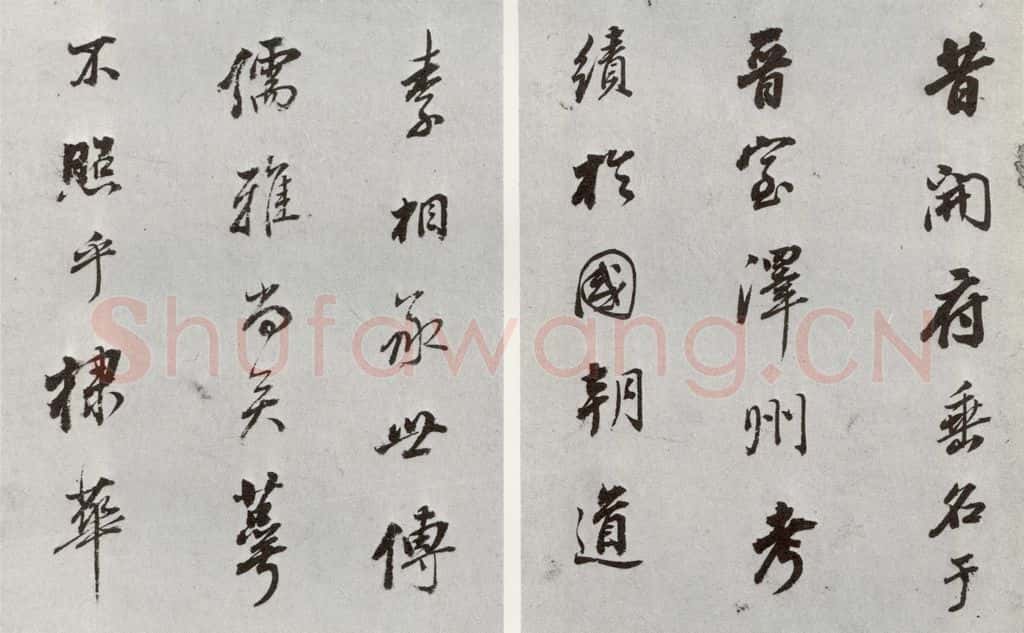 昔開府垂名于
晉室澤州考
績於國朝道
素相承世傳
儒雅尚矣萼
不照乎棣華
Shufawang.CN